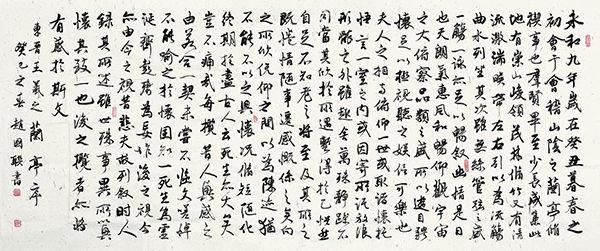 永和九年歲在癸丑暮春之
初會于會稽山陰之蘭亭脩
禊事也群賢畢至少長咸集此
地有崇山峻領茂林脩竹又有清
流激湍暎帶左右引以為流觴
曲水列坐其次雖無絲竹管弦之盛
一觴一詠亦足以暢敘幽情是日
也天朗氣清惠風和暢仰觀宇宙
之大俯察品類之盛所以遊目騁
懷足以極視聽之娛信可樂也
夫人之相與俯仰一世或取諸懷抱
悟言一室之內或因寄所託放浪
形骸之外雖趣舍萬殊靜躁不
同當其欣於所遇暫得於己快然
自足不知老之將至及其所之
既惓情隨事遷感慨係之矣向
之所欣俛仰之間以為陳迹猶
不能不以之興懷況脩短隨化
終期於盡古人云死生亦大矣
豈不痛哉每攬昔人興感之
由若合一契未嘗不臨文嗟悼
不能喻之於懷固知一死生為虛
誕齊彭殤為妄作後之視今
亦由今之視昔悲夫故列敘時人
錄其所述雖世殊事異所以興
懷其致一也後之攬者亦將
有感於斯文
東晉王羲之蘭亭序
癸巳之春趙國聯書